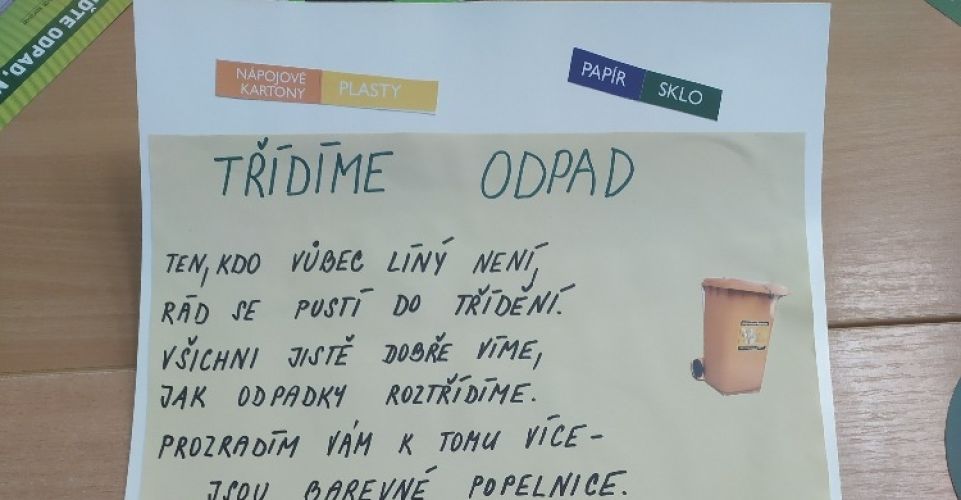 ĎTE ODPAD,
NÁPOJOVÉ
KARTONY
PLASTY
PAPÍR
SKLO
TŘÍDÍME ODPAD
TEN, KDO VŮBEC LÍNÝ NENÍ,
RÁD SE PUSTÍ DO TŘÍDĚNÍ.
VŠICHNI JISTĚ DOBŘE VÍME,
JAK ODPADKY ROZTŘÍDÍME.
PROZRADÍM VÁM K TOMU VÍCE-
JSOU BAREVNÉ POPELNICE.